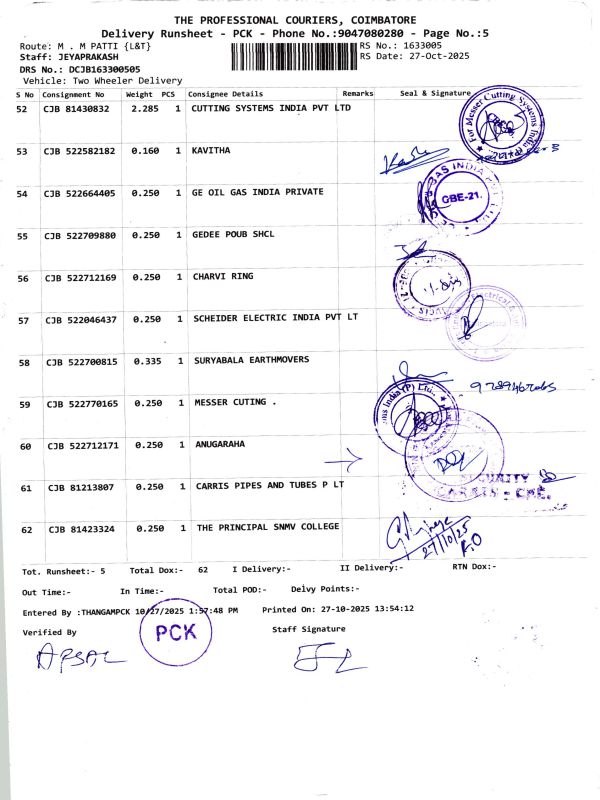 THE PROFESSIONAL COURIERS, COIMBATORE
Delivery Runsheet - PCK - Phone No.:9047080280 - Page No.:5
Route: M . M PATTI {L&T} RS No.: 1633005
Staff: JEYAPRAKASH RS Date: 27-Oct-2025
DRS No.: DCJB163300505
Vehicle: Two Wheeler Delivery
S No Consignment No Weight PCS Consignee Details Remarks Seal & Signature
52 CJB 81430832 2.285 1 CUTTING SYSTEMS INDIA PVT LTD
For Messer Cutting Systems India
53 CJB 522582182 0.160 1 KAVITHA
54 CJB 522664405 0.250 1 GE OIL GAS INDIA PRIVATE
GAS INDIA
GBE-21.
55 CJB 522709880 0.250 1 GEDEE POUB SHCL
56 CJB 522712169 0.250 1 CHARVI RING
57 CJB 522046437 0.250 1 SCHEIDER ELECTRIC INDIA PVT LT
58 CJB 522700815 0.335 1 SURYABALA EARTHMOVERS
59 CJB 522770165 0.250 1 MESSER CUTING .
India (P) Ltd.
60 CJB 522712171 0.250 1 ANUGARAHA
SECURITY
61 CJB 81213807 0.250 1 CARRIS PIPES AND TUBES P LT
62 CJB 81423324 0.250 1 THE PRINCIPAL SNMV COLLEGE
27/10/25
Tot. Runsheet:- 5 Total Dox:- 62 I Delivery:- II Delivery:- RTN Dox:-
Out Time:- In Time:- Total POD:- Delvy Points:-
Entered By :THANGAMPCK 10/27/2025 1:57:48 PM Printed On: 27-10-2025 13:54:12
Verified By Staff Signature
PCK
APSAL